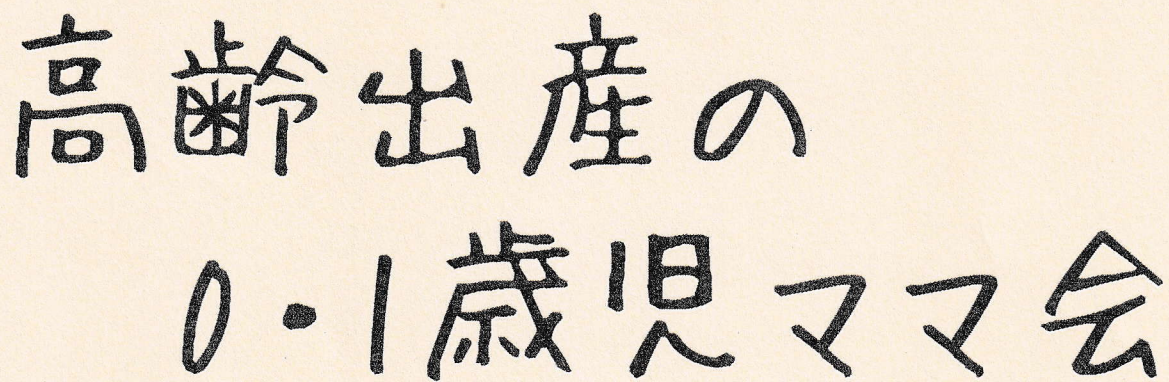 高齢出産の
0・1歳児ママ会